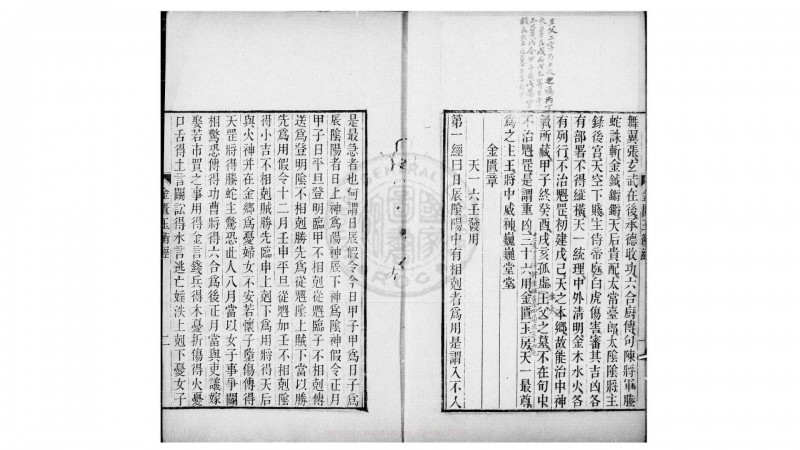 舞翼張玄武在後承德收功六合廚傳句陳將軍騰
蛇誅斬金鉞鏘鏘天后貴配太常臺郎太陰陰將主
錄後宮天空下賤主侍帝庭白虎傷害審其吉凶各
有部署不得縱橫天一統理中外清明金木水火各
有列行不治魁罡初建戊己天之本鄉故能治中神
氣所藏甲子終癸酉戌亥孤虛王父之墓不在旬中
不治魁罡是謂重凶三十六用金匱玉房天一最尊
爲之主王將中威神巍巍堂堂
金匱章
天一六壬發用
第一經曰日辰陰陽中有相剋者爲用是謂入不人
金匱玉衡經
是最急者也何謂日辰假令今日甲子甲爲日子爲
辰陰陽者日上神爲陽神辰下神爲陰神假令正月
甲子日平旦登明臨甲不相剋從魁臨子不相剋傳
送爲登明陰不相剋勝先爲從魁陰上賊下當以勝
先爲用假令十二月壬申平旦從魁加壬不相剋陰
得小吉不相剋賊勝先臨申上剋下爲用將得天后
與火神并在金鄉爲憂婦女不安若懷子墮傷傳得
天罡將得騰蛇主驚恐此人八月當以女子事爭鬬
相驚恐傳得功曹將得六合爲後正月當與吏議嫁
娶若市買之事用得金言錢兵得木憂折傷得火憂
口舌得土言鬬訟得水言逃亡婬泆上剋下憂女子
金匱玉衡經
二